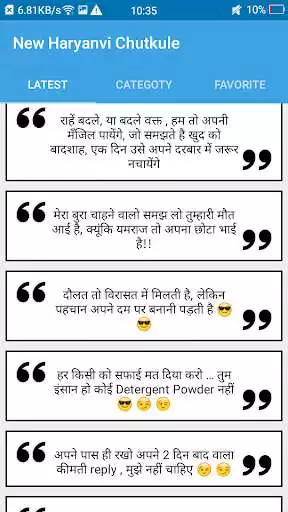 6.81KB/s 10:35 10%
New Haryanvi Chutkule
LATEST CATEGOTY FAVORITE
राहें बदले, या बदले वक्त , हम तो अपनी
मँजिल पायेंगे, जो समझते है खुद को
बादशाह, एक दिन उसे अपने दरबार में जरूर
नचायेंगे
मेरा बुरा चाहने वालो समझ लो तुम्हारी मौत
आई है, क्यूंकि यमराज तो अपना छोटा भाई
है!!
दौलत तो विरासत में मिलती है, लेकिन
पहचान अपने दम पर बनानी पड़ती है 😎
😎
हर किसी को सफाई मत दिया करो ... तुम
इंसान हो कोई Detergent Powder नहीं
😎 😏 😏
अपने पास ही रखो अपने 2 दिन बाद वाला
कीमती reply , मुझे नहीं चाहिए 😏 😏